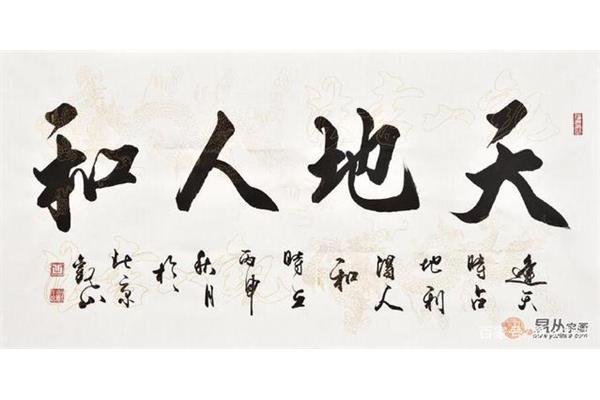 天地人和
逢天
時占
地利
得人
和
時在
丙申
秋月
於
北京
観山
易从字画